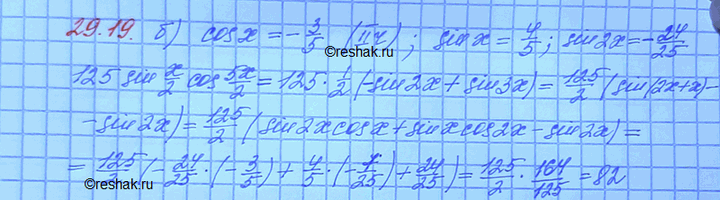 29.19. б) cos x = -3/5 (II ч); sin x = 4/5; sin 2x = -24/25
©reshak.ru
125 sin x/2 cos 5x/2 = 125 · 1/2 (-sin 2x + sin 3x) = 125/2 (sin(2x+x) -
- sin 2x) = 125/2 (sin 2x cos x + sin x cos 2x - sin 2x) =
= 125/2 (-24/25 · (-3/5) + 4/5 · (-7/25) + 24/25) = 125/2 · 164/125 = 82
©reshak.ru